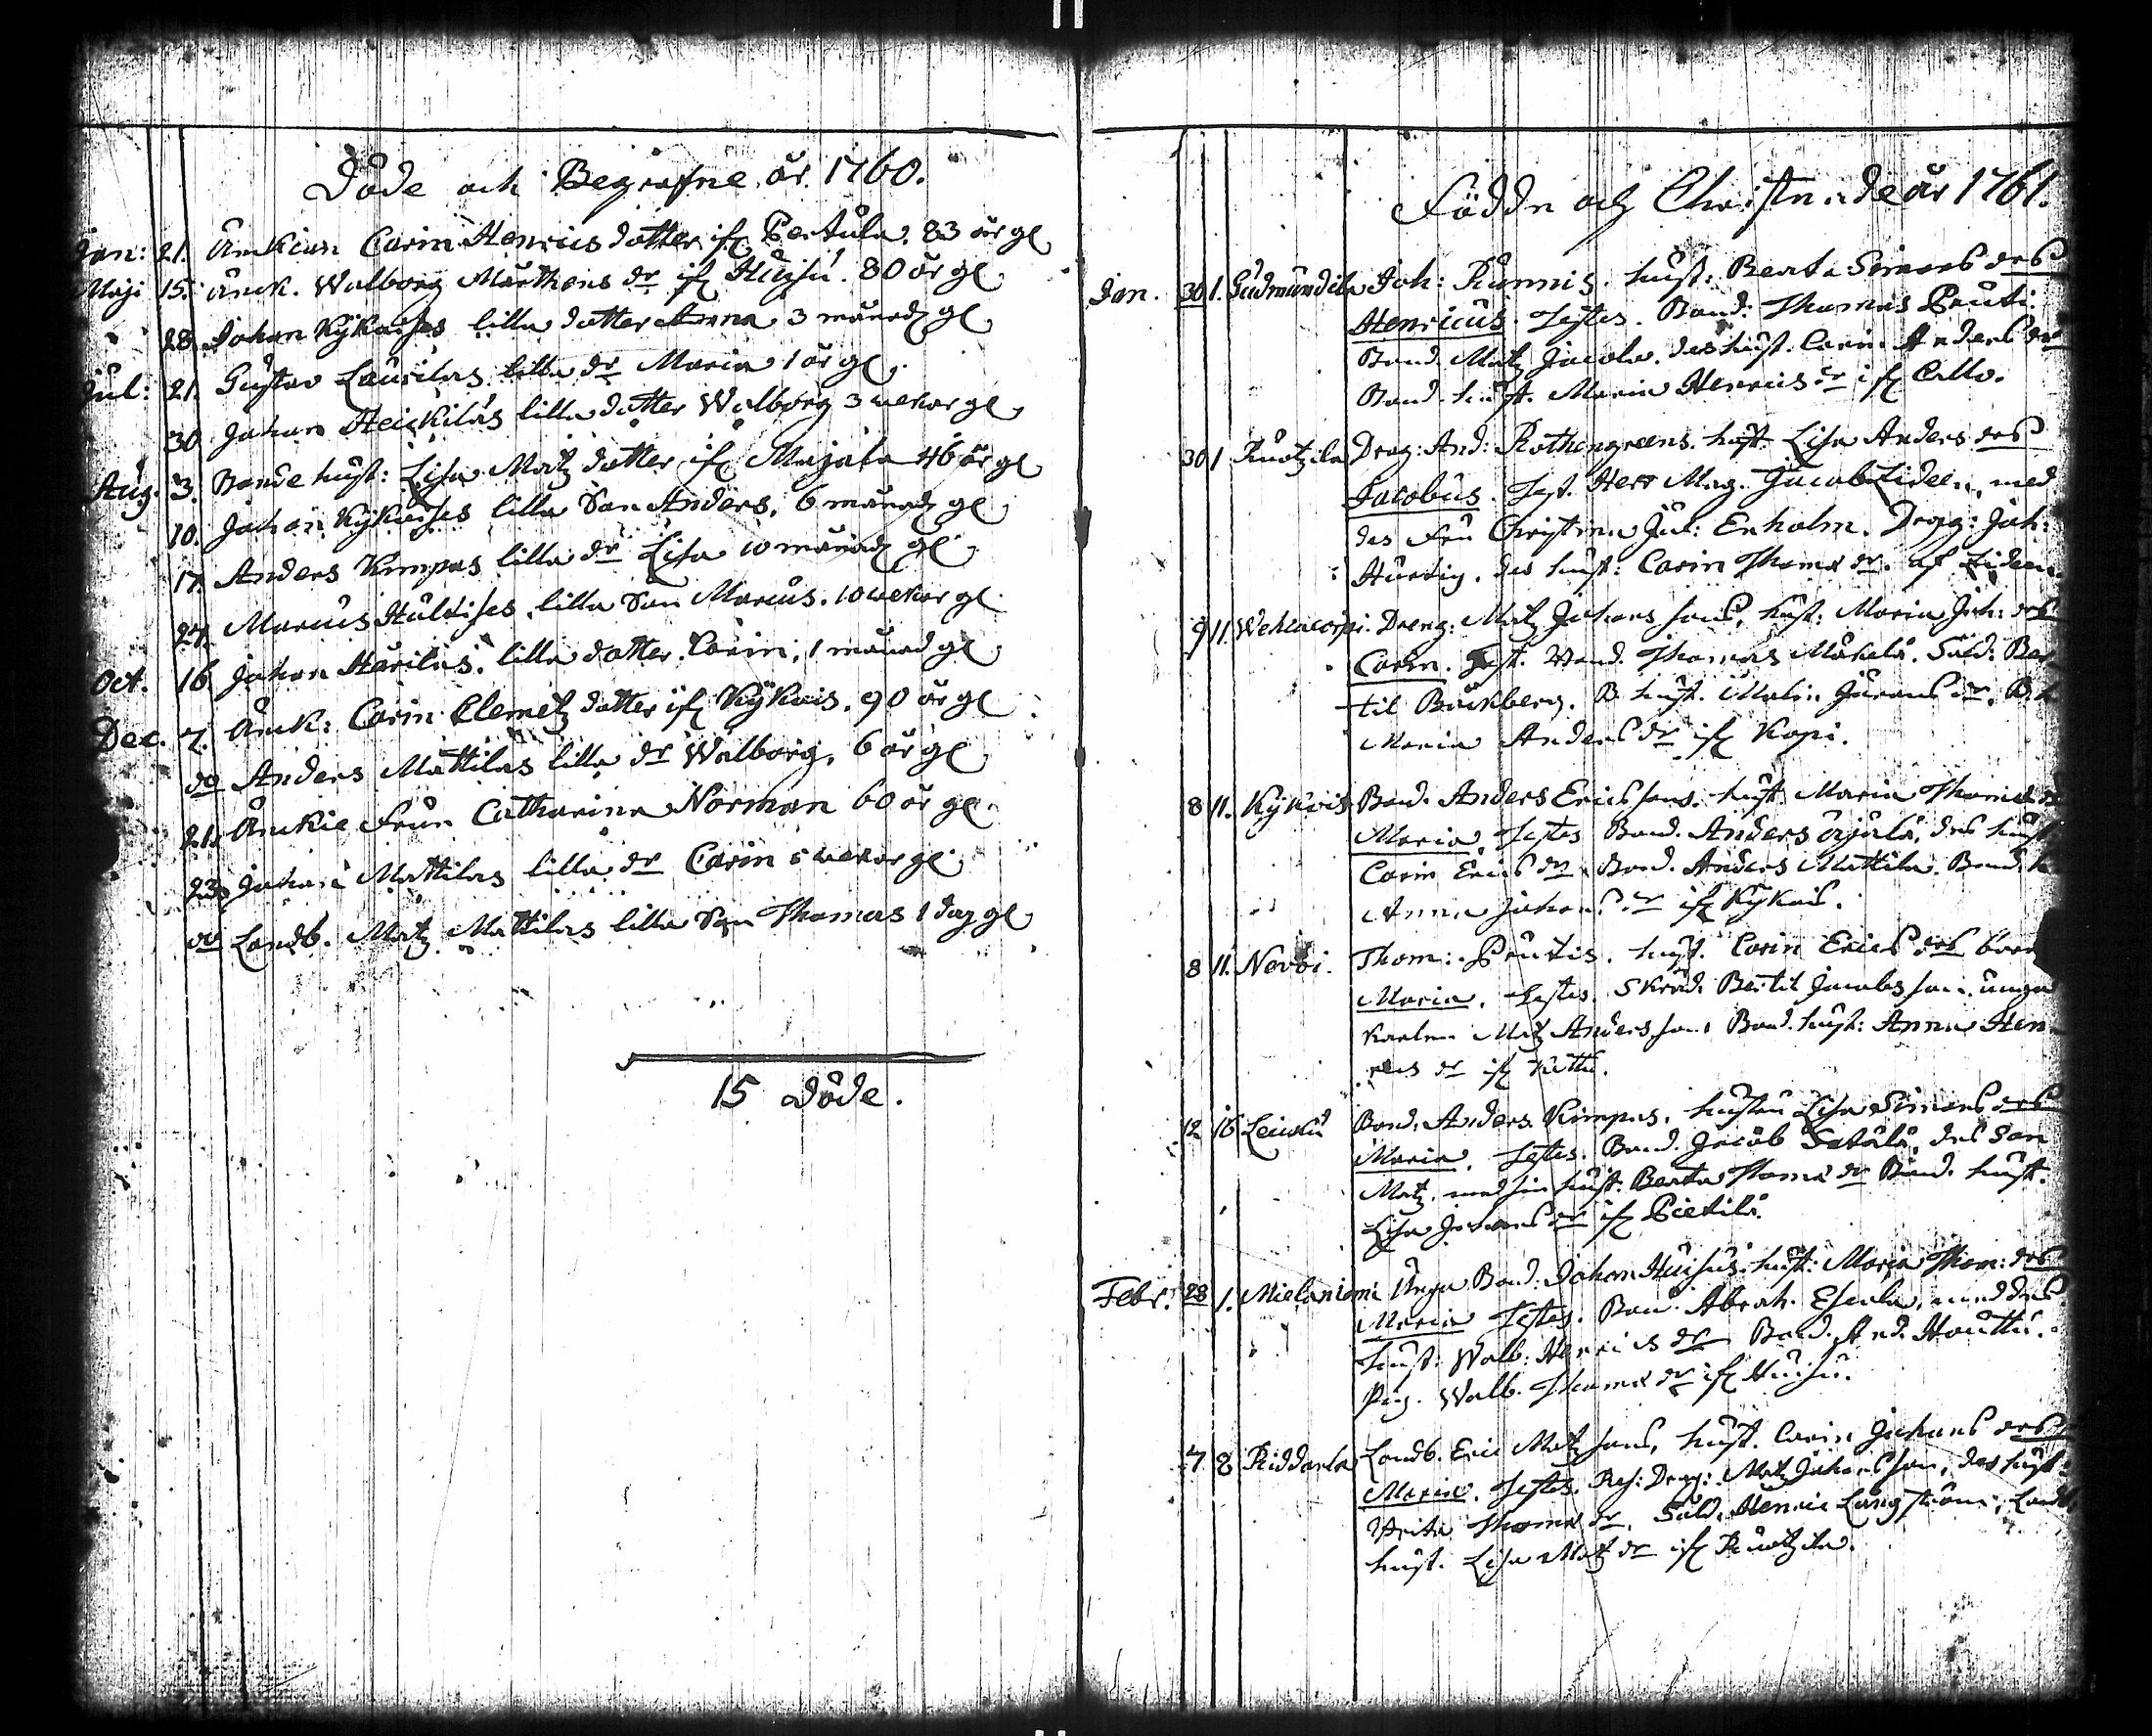 Döde och Begrafne år 1760.
Jan: 21. Änkian Carin Henrics dotter ifr Pertula. 83 år gl
Maji 15. Änck. Walborg Mårthens dr ifr Hujsu. 80 år gl
28. Johan Kykaises lilla dotter Anna 3 månad gl
Jul: 21. Gustav Laurilas lilla dr Maria 1 år gl.
30 Johan Heickiläs lilla dotter Walborg 3 wekor gl
Aug. 3. Bonde hust: Lisa Matz dotter ifr Majala 46 år gl
10. Johan Kykaises lilla Son Anders, 6 månad gl
17. Anders Kimpas lilla dr Lisa 10 månad gl
27. Marcus Hultises lilla Son Marcus. 10 wekor gl.
Oct. 16 Johan Härilas lilla dotter Carin, 1 månad gl
Dec. 7. Änck: Carin Clemetz dotter ifr Kykais. 90 år gl
do Anders Mattilas lilla dr Walborg, 6 år gl
21. Änckie Frun Catharina Norman 60 år gl.
23 Johan Mattilas lilla dr Carin 5 wekor gl
do Landb. Matz Mattilas lilla Son Thomas 1 dag gl
15 Döde.
Födde och Christnade år 1761.
Jan. 30 1. Gudmundila Joh: Runnis. hust: Beata Simons drs
Henricus. Testes. Bond. Thomas Pruti.
Bond. Matz Jacola. des hust. Carin Anders dr
Bond. hust. Maria Henrics dr ifr Callo.
30 1 Ruotzila Drag: And: Rothengreens hust Lisa Anders drs
Jacobus. Test. Herr Mag. Jacob Lideen, med
des Fru Christina Jul: Enholm. Drag: Joh:
Hurtig. des hust: Carin Thoms dr. af Lideen.
9 11. Wehlacorpi. Dreng: Matz Johans sons, hust: Maria Joh: drs
Carin. Test. Bond. Thomas Mäkelä. Sold: Ber
til Bäckberg. B hust. Malin Jörans dr. B. h
Maria Anders dr ifr Kopi.
8 11. Kykais Bond. Anders Erics sons hust Maria Thomas
Maria. Testes Bond. Anders Äijälä, des hust
Carin Erics dr Bond. Anders Mattila. Bond. h
Anna Johans dr ifr Kykais.
8 11. Novoi. Thom: Prutis. hust. Carin Erics drs
Maria. Testes. Skräd. Bertil Jacobs son. unga
karlen Matz Anders son Bond. hust: Anna Hen
rics dr ifr Kuttu.
12 16 Leuku Bond. Anders Kimpas, hustru Lisa Simons drs
Maria. Testes. Bond. Jacob Setälä, des Son
Matz. med sin hust. Beata Thoms dr Bond. hust.
Lisa Johans dr ifr Pietilä.
Febr. 28 1. Mielaniemi Unga Bond. Johan Huisus hust: Maria Thom: drs
Maria Testes. Bon. Abrah. Eskola, med des
hust: Walb: Henrics dr Bond. And. Houttu.
Pig. Walb. Thoms dr ifr Huisu.
7 8 Riddarla Landb. Eric Matz sons, hust. Carin Johans drs
Maria. Testes. Res: Drag: Matz Johans son, des hust
Brita Thoms dr. Sold. Henric Långström, Landb
hust. Lisa Matz dr ifr Ruotzila.